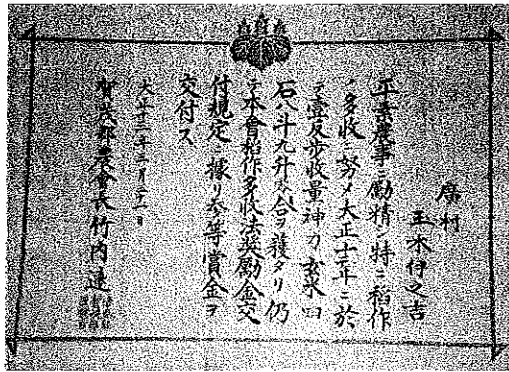 廣村
玉木伊之吉
平素農事ニ勵精シ特ニ稲作
ノ多收ニ努メ大正十一年ニ於
テ壹反歩收量神力玄米四
石八斗九升合ヲ獲タリ仍
テ本會稲作多收法奨勵金交
付規定ニ據リ参等賞金ヲ
交付ス
大正十二年三月二十一日
賀茂郡農會長竹内連